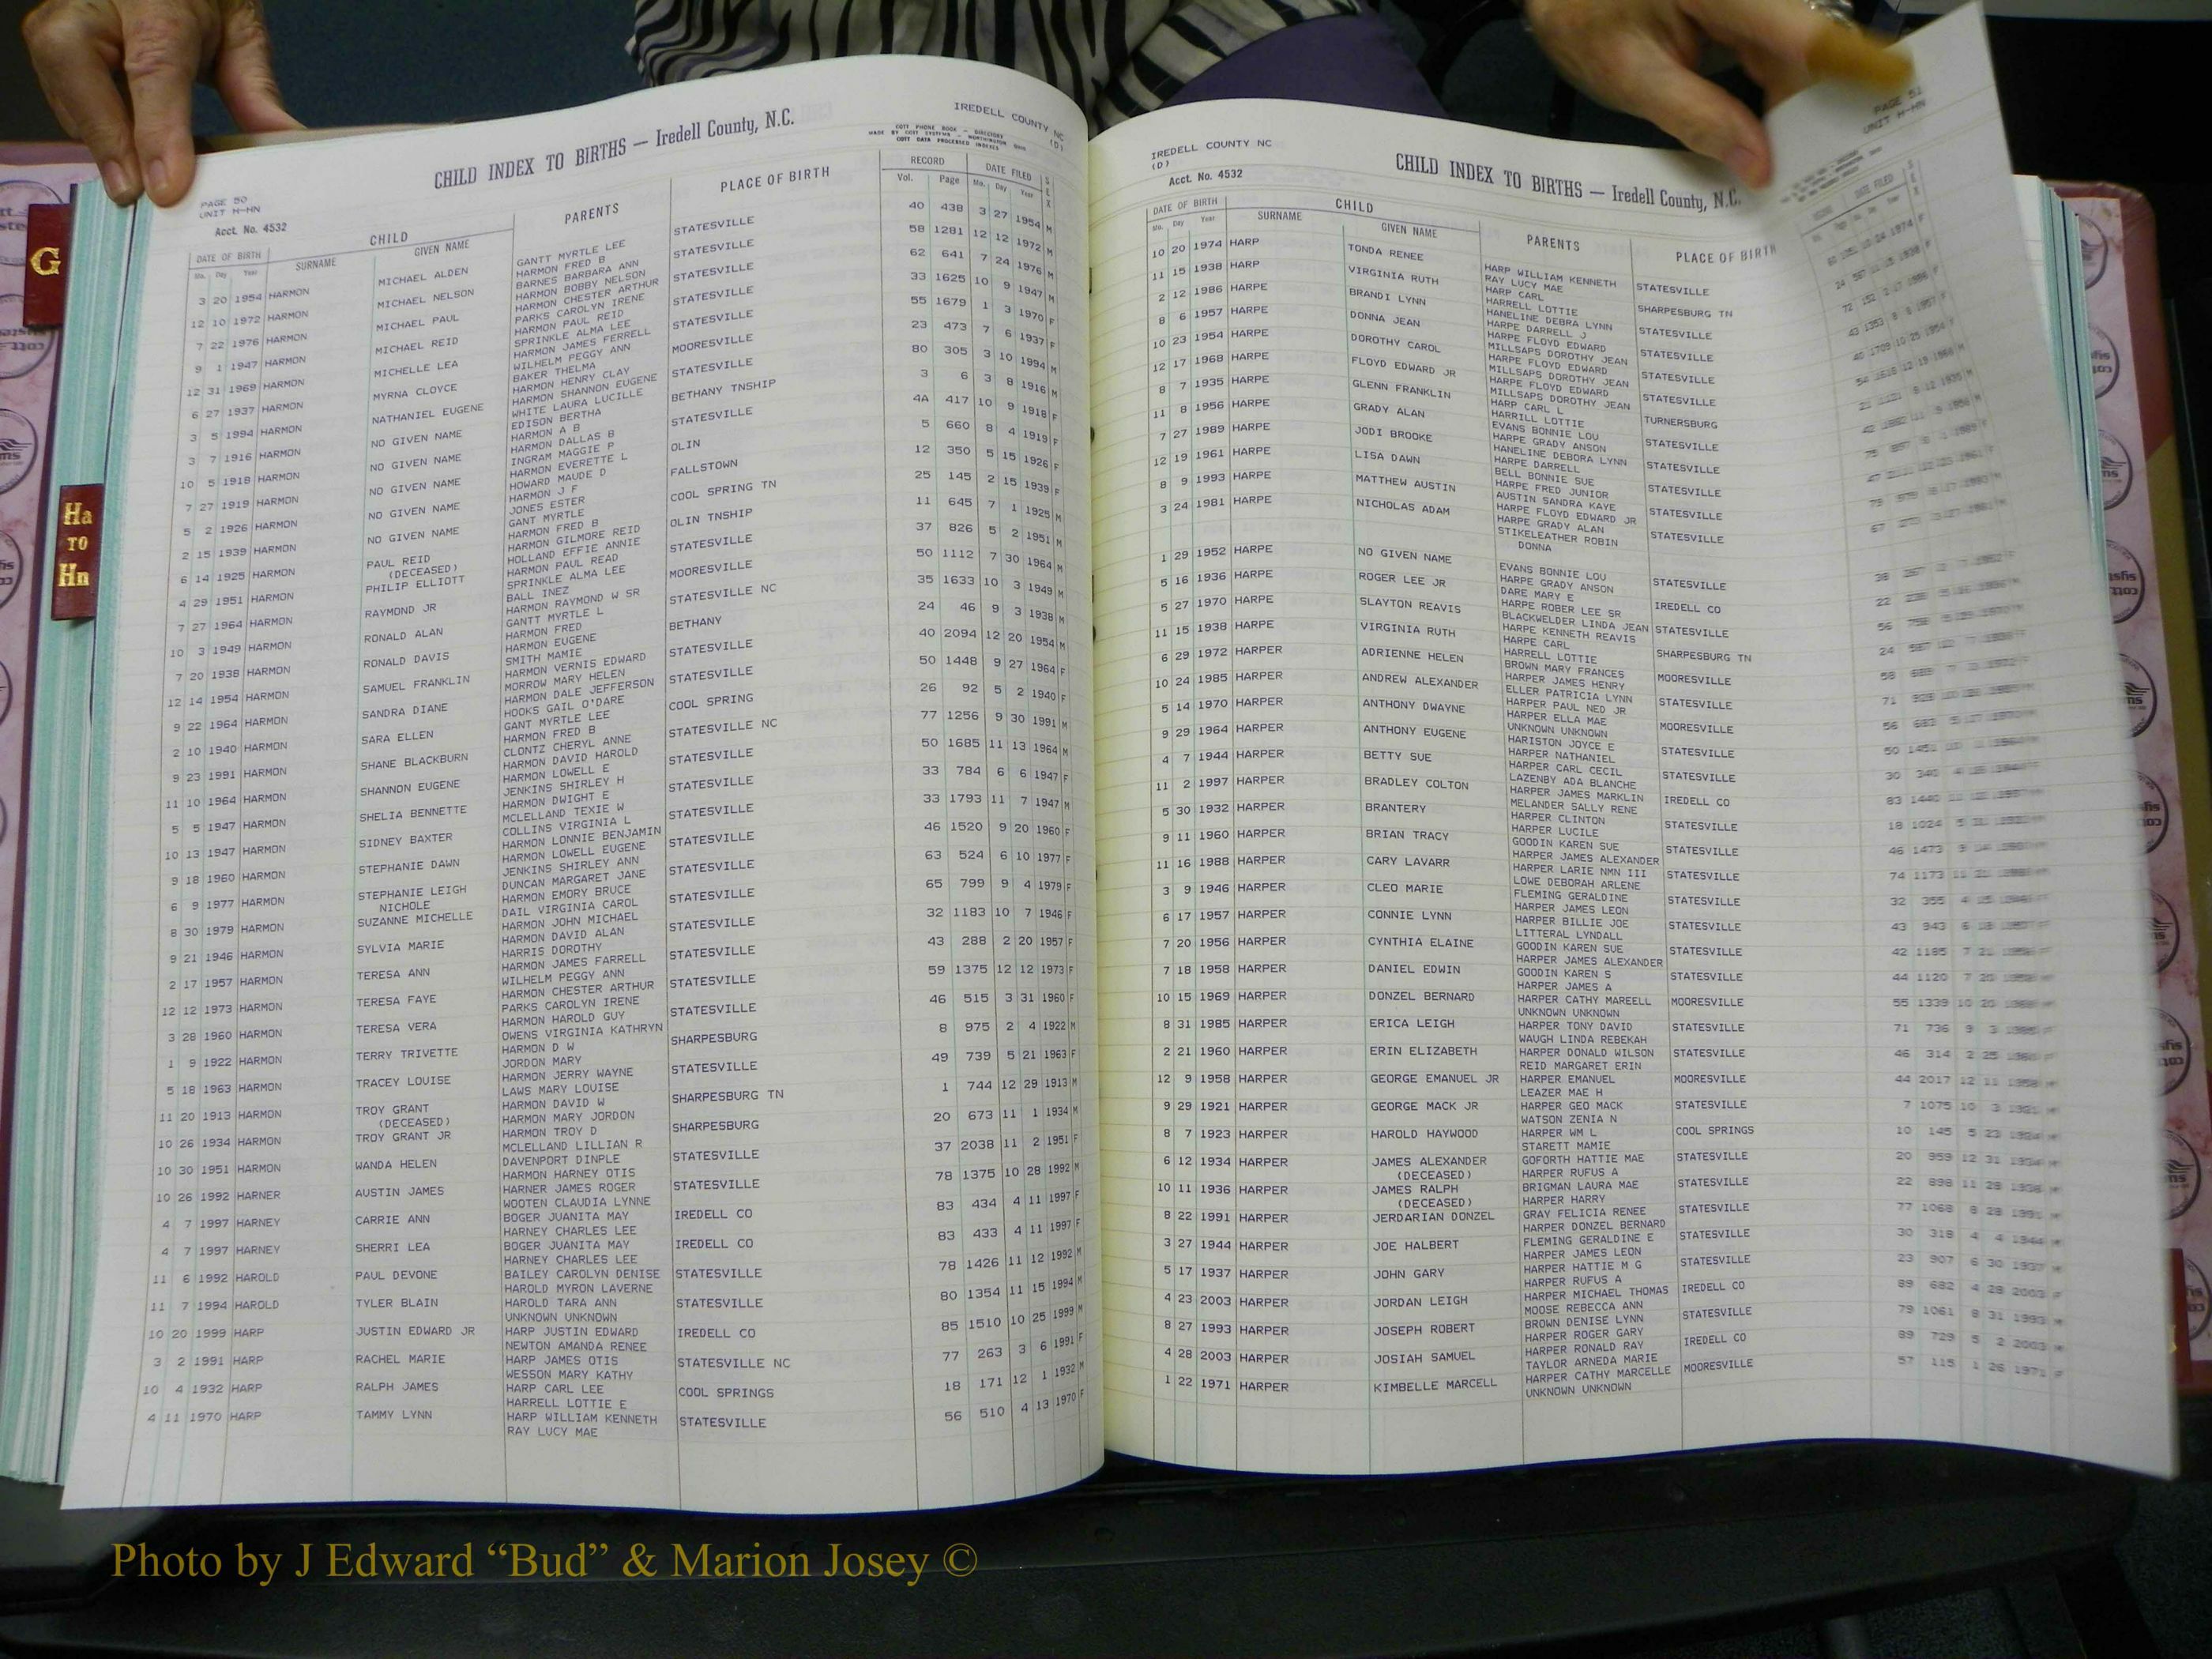 IREDELL COUNTY NC
(D)
COTT PHONE BOOK — DIRECTORY
CHILD INDEX TO BIRTHS — Iredell County, N.C.
PAGE 50
UNIT H-HN
Acct. No. 4532
DATE OF BIRTH CHILD PARENTS PLACE OF BIRTH RECORD DATE FILED SEX
Mo. Day Year SURNAME GIVEN NAME Vol. Page Mo. Day Year
3 20 1954 HARMON MICHAEL ALDEN GANTT MYRTLE LEE STATESVILLE 40 438 3 27 1954 M
HARMON FRED B
12 10 1972 HARMON MICHAEL NELSON BARNES BARBARA ANN STATESVILLE 58 1281 12 12 1972 M
HARMON BOBBY NELSON
7 22 1976 HARMON MICHAEL PAUL HARMON CHESTER ARTHUR STATESVILLE 62 641 7 24 1976 M
PARKS CAROLYN IRENE
9 1 1947 HARMON MICHAEL REID HARMON PAUL REID STATESVILLE 33 1625 10 9 1947 M
SPRINKLE ALMA LEE
12 31 1969 HARMON MICHELLE LEA HARMON JAMES FERRELL STATESVILLE 55 1679 1 3 1970 F
WILHELM PEGGY ANN
6 27 1937 HARMON MYRNA CLOYCE BAKER THELMA MOORESVILLE 23 473 7 6 1937 F
HARMON HENRY CLAY
3 5 1994 HARMON NATHANIEL EUGENE HARMON SHANNON EUGENE STATESVILLE 80 305 3 10 1994 M
WHITE LAURA LUCILLE
3 7 1916 HARMON NO GIVEN NAME EDISON BERTHA BETHANY TNSHIP 3 6 3 8 1916 M
HARMON A B
10 5 1918 HARMON NO GIVEN NAME HARMON DALLAS B STATESVILLE 4A 417 10 9 1918 F
INGRAM MAGGIE P
7 27 1919 HARMON NO GIVEN NAME HARMON EVERETTE L OLIN 5 660 8 4 1919 F
HOWARD MAUDE D
5 2 1926 HARMON NO GIVEN NAME HARMON J F FALLSTOWN 12 350 5 15 1926 F
JONES ESTER
2 15 1939 HARMON NO GIVEN NAME GANT MYRTLE COOL SPRING TN 25 145 2 15 1939 F
HARMON FRED B
6 14 1925 HARMON PAUL REID HARMON GILMORE REID OLIN TNSHIP 11 645 7 1 1925 M
(DECEASED) HOLLAND EFFIE ANNIE
4 29 1951 HARMON PHILIP ELLIOTT HARMON PAUL READ STATESVILLE 37 826 5 2 1951 M
SPRINKLE ALMA LEE
7 27 1964 HARMON RAYMOND JR BALL INEZ MOORESVILLE 50 1112 7 30 1964 M
HARMON RAYMOND W SR
10 3 1949 HARMON RONALD ALAN GANTT MYRTLE L STATESVILLE NC 35 1633 10 3 1949 M
HARMON FRED
7 20 1938 HARMON RONALD DAVIS HARMON EUGENE BETHANY 24 46 9 3 1938 M
SMITH MAMIE
12 14 1954 HARMON SAMUEL FRANKLIN HARMON VERNIS EDWARD STATESVILLE 40 2094 12 20 1954 M
MORROW MARY HELEN
9 22 1964 HARMON SANDRA DIANE HARMON DALE JEFFERSON STATESVILLE 50 1448 9 27 1964 F
HOOKS GAIL O'DARE
2 10 1940 HARMON SARA ELLEN GANT MYRTLE LEE COOL SPRING 26 92 5 2 1940 F
HARMON FRED B
9 23 1991 HARMON SHANE BLACKBURN CLONTZ CHERYL ANNE STATESVILLE NC 77 1256 9 30 1991 M
HARMON DAVID HAROLD
11 10 1964 HARMON SHANNON EUGENE HARMON LOWELL E STATESVILLE 50 1685 11 13 1964 M
JENKINS SHIRLEY H
5 5 1947 HARMON SHELIA BENNETTE HARMON DWIGHT E STATESVILLE 33 784 6 6 1947 F
MCLELLAND TEXIE W
10 13 1947 HARMON SIDNEY BAXTER COLLINS VIRGINIA L STATESVILLE 33 1793 11 7 1947 M
HARMON LONNIE BENJAMIN
9 18 1960 HARMON STEPHANIE DAWN HARMON LOWELL EUGENE STATESVILLE 46 1520 9 20 1960 F
JENKINS SHIRLEY ANN
6 9 1977 HARMON STEPHANIE LEIGH DUNCAN MARGARET JANE STATESVILLE 63 524 6 10 1977 F
NICHOLE HARMON EMORY BRUCE
8 30 1979 HARMON SUZANNE MICHELLE DAIL VIRGINIA CAROL STATESVILLE 65 799 9 4 1979 F
HARMON JOHN MICHAEL
9 21 1946 HARMON SYLVIA MARIE HARMON DAVID ALAN STATESVILLE 32 1183 10 7 1946 F
HARRIS DOROTHY
2 17 1957 HARMON TERESA ANN HARMON JAMES FARRELL STATESVILLE 43 288 2 20 1957 F
WILHELM PEGGY ANN
12 12 1973 HARMON TERESA FAYE HARMON CHESTER ARTHUR STATESVILLE 59 1375 12 12 1973 F
PARKS CAROLYN IRENE
3 28 1960 HARMON TERESA VERA HARMON HAROLD GUY STATESVILLE 46 515 3 31 1960 F
OWENS VIRGINIA KATHRYN
1 9 1922 HARMON TERRY TRIVETTE HARMON D W SHARPESBURG 8 975 2 4 1922 M
JORDON MARY
5 18 1963 HARMON TRACEY LOUISE HARMON JERRY WAYNE STATESVILLE 49 739 5 21 1963 F
LAWS MARY LOUISE
11 20 1913 HARMON TROY GRANT HARMON DAVID W SHARPESBURG TN 1 744 12 29 1913 M
(DECEASED) HARMON MARY JORDON
10 26 1934 HARMON TROY GRANT JR HARMON TROY D SHARPESBURG 20 673 11 1 1934 M
MCLELLAND LILLIAN R
10 30 1951 HARMON WANDA HELEN DAVENPORT DINPLE STATESVILLE 37 2038 11 2 1951 F
HARMON HARNEY OTIS
10 26 1992 HARNER AUSTIN JAMES HARNER JAMES ROGER STATESVILLE 78 1375 10 28 1992 M
WOOTEN CLAUDIA LYNNE
4 7 1997 HARNEY CARRIE ANN BOGER JUANITA MAY IREDELL CO 83 434 4 11 1997 F
HARNEY CHARLES LEE
4 7 1997 HARNEY SHERRI LEA BOGER JUANITA MAY IREDELL CO 83 433 4 11 1997 F
HARNEY CHARLES LEE
11 6 1992 HAROLD PAUL DEVONE BAILEY CAROLYN DENISE STATESVILLE 78 1426 11 12 1992 M
HAROLD MYRON LAVERNE
11 7 1994 HAROLD TYLER BLAIN HAROLD TARA ANN STATESVILLE 80 1354 11 15 1994 M
UNKNOWN UNKNOWN
10 20 1999 HARP JUSTIN EDWARD JR HARP JUSTIN EDWARD IREDELL CO 85 1510 10 25 1999 M
NEWTON AMANDA RENEE
3 2 1991 HARP RACHEL MARIE HARP JAMES OTIS STATESVILLE NC 77 263 3 6 1991 F
WESSON MARY KATHY
10 4 1932 HARP RALPH JAMES HARP CARL LEE COOL SPRINGS 18 171 12 1 1932 M
HARRELL LOTTIE E
4 11 1970 HARP TAMMY LYNN HARP WILLIAM KENNETH STATESVILLE 56 510 4 13 1970 F
RAY LUCY MAE
G
Ha
TO
Hn
IREDELL COUNTY NC
(D)
Acct. No. 4532
CHILD INDEX TO BIRTHS — Iredell County, N.C.
PAGE 51
UNIT H-HN
DATE OF BIRTH CHILD PARENTS PLACE OF BIRTH DATE FILED
Mo. Day Year SURNAME GIVEN NAME
10 20 1974 HARP TONDA RENEE HARP WILLIAM KENNETH STATESVILLE
RAY LUCY MAE
11 15 1938 HARP VIRGINIA RUTH HARP CARL SHARPESBURG TN
HARRELL LOTTIE
2 12 1986 HARPE BRANDI LYNN HANELINE DEBRA LYNN STATESVILLE
HARPE DARRELL J
8 6 1957 HARPE DONNA JEAN HARPE FLOYD EDWARD STATESVILLE
MILLSAPS DOROTHY JEAN
10 23 1954 HARPE DOROTHY CAROL HARPE FLOYD EDWARD STATESVILLE
MILLSAPS DOROTHY JEAN
12 17 1968 HARPE FLOYD EDWARD JR HARPE FLOYD EDWARD STATESVILLE
MILLSAPS DOROTHY JEAN
8 7 1935 HARPE GLENN FRANKLIN HARP CARL L TURNERSBURG
HARRILL LOTTIE
11 8 1956 HARPE GRADY ALAN EVANS BONNIE LOU STATESVILLE
HARPE GRADY ANSON
7 27 1989 HARPE JODI BROOKE HANELINE DEBORA LYNN STATESVILLE
HARPE DARRELL
12 19 1961 HARPE LISA DAWN BELL BONNIE SUE STATESVILLE
HARPE FRED JUNIOR
8 9 1993 HARPE MATTHEW AUSTIN AUSTIN SANDRA KAYE STATESVILLE
HARPE FLOYD EDWARD JR
3 24 1981 HARPE NICHOLAS ADAM HARPE GRADY ALAN STATESVILLE
STIKELEATHER ROBIN
DONNA
1 29 1952 HARPE NO GIVEN NAME EVANS BONNIE LOU STATESVILLE
HARPE GRADY ANSON
5 16 1936 HARPE ROGER LEE JR DARE MARY E IREDELL CO
HARPE ROBER LEE SR
5 27 1970 HARPE SLAYTON REAVIS BLACKWELDER LINDA JEAN STATESVILLE
HARPE KENNETH REAVIS
11 15 1938 HARPE VIRGINIA RUTH HARPE CARL SHARPESBURG TN
HARRELL LOTTIE
6 29 1972 HARPER ADRIENNE HELEN BROWN MARY FRANCES MOORESVILLE
HARPER JAMES HENRY
10 24 1985 HARPER ANDREW ALEXANDER ELLER PATRICIA LYNN STATESVILLE
HARPER PAUL NED JR
5 14 1970 HARPER ANTHONY DWAYNE HARPER ELLA MAE MOORESVILLE
UNKNOWN UNKNOWN
9 29 1964 HARPER ANTHONY EUGENE HARISTON JOYCE E STATESVILLE
HARPER NATHANIEL
4 7 1944 HARPER BETTY SUE HARPER CARL CECIL STATESVILLE
LAZENBY ADA BLANCHE
11 2 1997 HARPER BRADLEY COLTON HARPER JAMES MARKLIN IREDELL CO 83 1440
MELANDER SALLY RENE
5 30 1932 HARPER BRANTERY HARPER CLINTON STATESVILLE 18 1024
HARPER LUCILE
9 11 1960 HARPER BRIAN TRACY GOODIN KAREN SUE STATESVILLE 46 1473
HARPER JAMES ALEXANDER
11 16 1988 HARPER CARY LAVARR HARPER LARIE NMN III STATESVILLE 74 1173
LOWE DEBORAH ARLENE
3 9 1946 HARPER CLEO MARIE FLEMING GERALDINE STATESVILLE 32 355
HARPER JAMES LEON
6 17 1957 HARPER CONNIE LYNN HARPER BILLIE JOE STATESVILLE 43 943
LITTERAL LYNDALL
7 20 1956 HARPER CYNTHIA ELAINE GOODIN KAREN SUE STATESVILLE 42 1185
HARPER JAMES ALEXANDER
7 18 1958 HARPER DANIEL EDWIN GOODIN KAREN S STATESVILLE 44 1120
HARPER JAMES A
10 15 1969 HARPER DONZEL BERNARD HARPER CATHY MAREELL MOORESVILLE 55 1339 10 20
UNKNOWN UNKNOWN
8 31 1985 HARPER ERICA LEIGH HARPER TONY DAVID STATESVILLE 71 736 9 3
WAUGH LINDA REBEKAH
2 21 1960 HARPER ERIN ELIZABETH HARPER DONALD WILSON STATESVILLE 46 314 2 25
REID MARGARET ERIN
12 9 1958 HARPER GEORGE EMANUEL JR HARPER EMANUEL MOORESVILLE 44 2017 12 11
LEAZER MAE H
9 29 1921 HARPER GEORGE MACK JR HARPER GEO MACK STATESVILLE 7 1075 10 3
WATSON ZENIA N
8 7 1923 HARPER HAROLD HAYWOOD HARPER WM L COOL SPRINGS 10 145 5 23
STARETT MAMIE
6 12 1934 HARPER JAMES ALEXANDER GOFORTH HATTIE MAE STATESVILLE 20 959 12 31
(DECEASED) HARPER RUFUS A
10 11 1936 HARPER JAMES RALPH BRIGMAN LAURA MAE STATESVILLE 22 898 11 28
(DECEASED) HARPER HARRY
8 22 1991 HARPER JERDARIAN DONZEL GRAY FELICIA RENEE STATESVILLE 77 1068 8 28
HARPER DONZEL BERNARD
3 27 1944 HARPER JOE HALBERT FLEMING GERALDINE E STATESVILLE 30 318 4 4 1944
HARPER JAMES LEON
5 17 1937 HARPER JOHN GARY HARPER HATTIE M G STATESVILLE 23 907 6 30 1937
HARPER RUFUS A
4 23 2003 HARPER JORDAN LEIGH HARPER MICHAEL THOMAS IREDELL CO 89 682 4 28 2003
MOOSE REBECCA ANN
8 27 1993 HARPER JOSEPH ROBERT BROWN DENISE LYNN STATESVILLE 79 1061 8 31 1993
HARPER ROGER GARY
4 28 2003 HARPER JOSIAH SAMUEL HARPER RONALD RAY IREDELL CO 89 729 5 2 2003
TAYLOR ARNEDA MARIE
1 22 1971 HARPER KIMBELLE MARCELL HARPER CATHY MARCELLE MOORESVILLE 57 115 1 26 1971
UNKNOWN UNKNOWN
Photo by J Edward “Bud” & Marion Josey ©